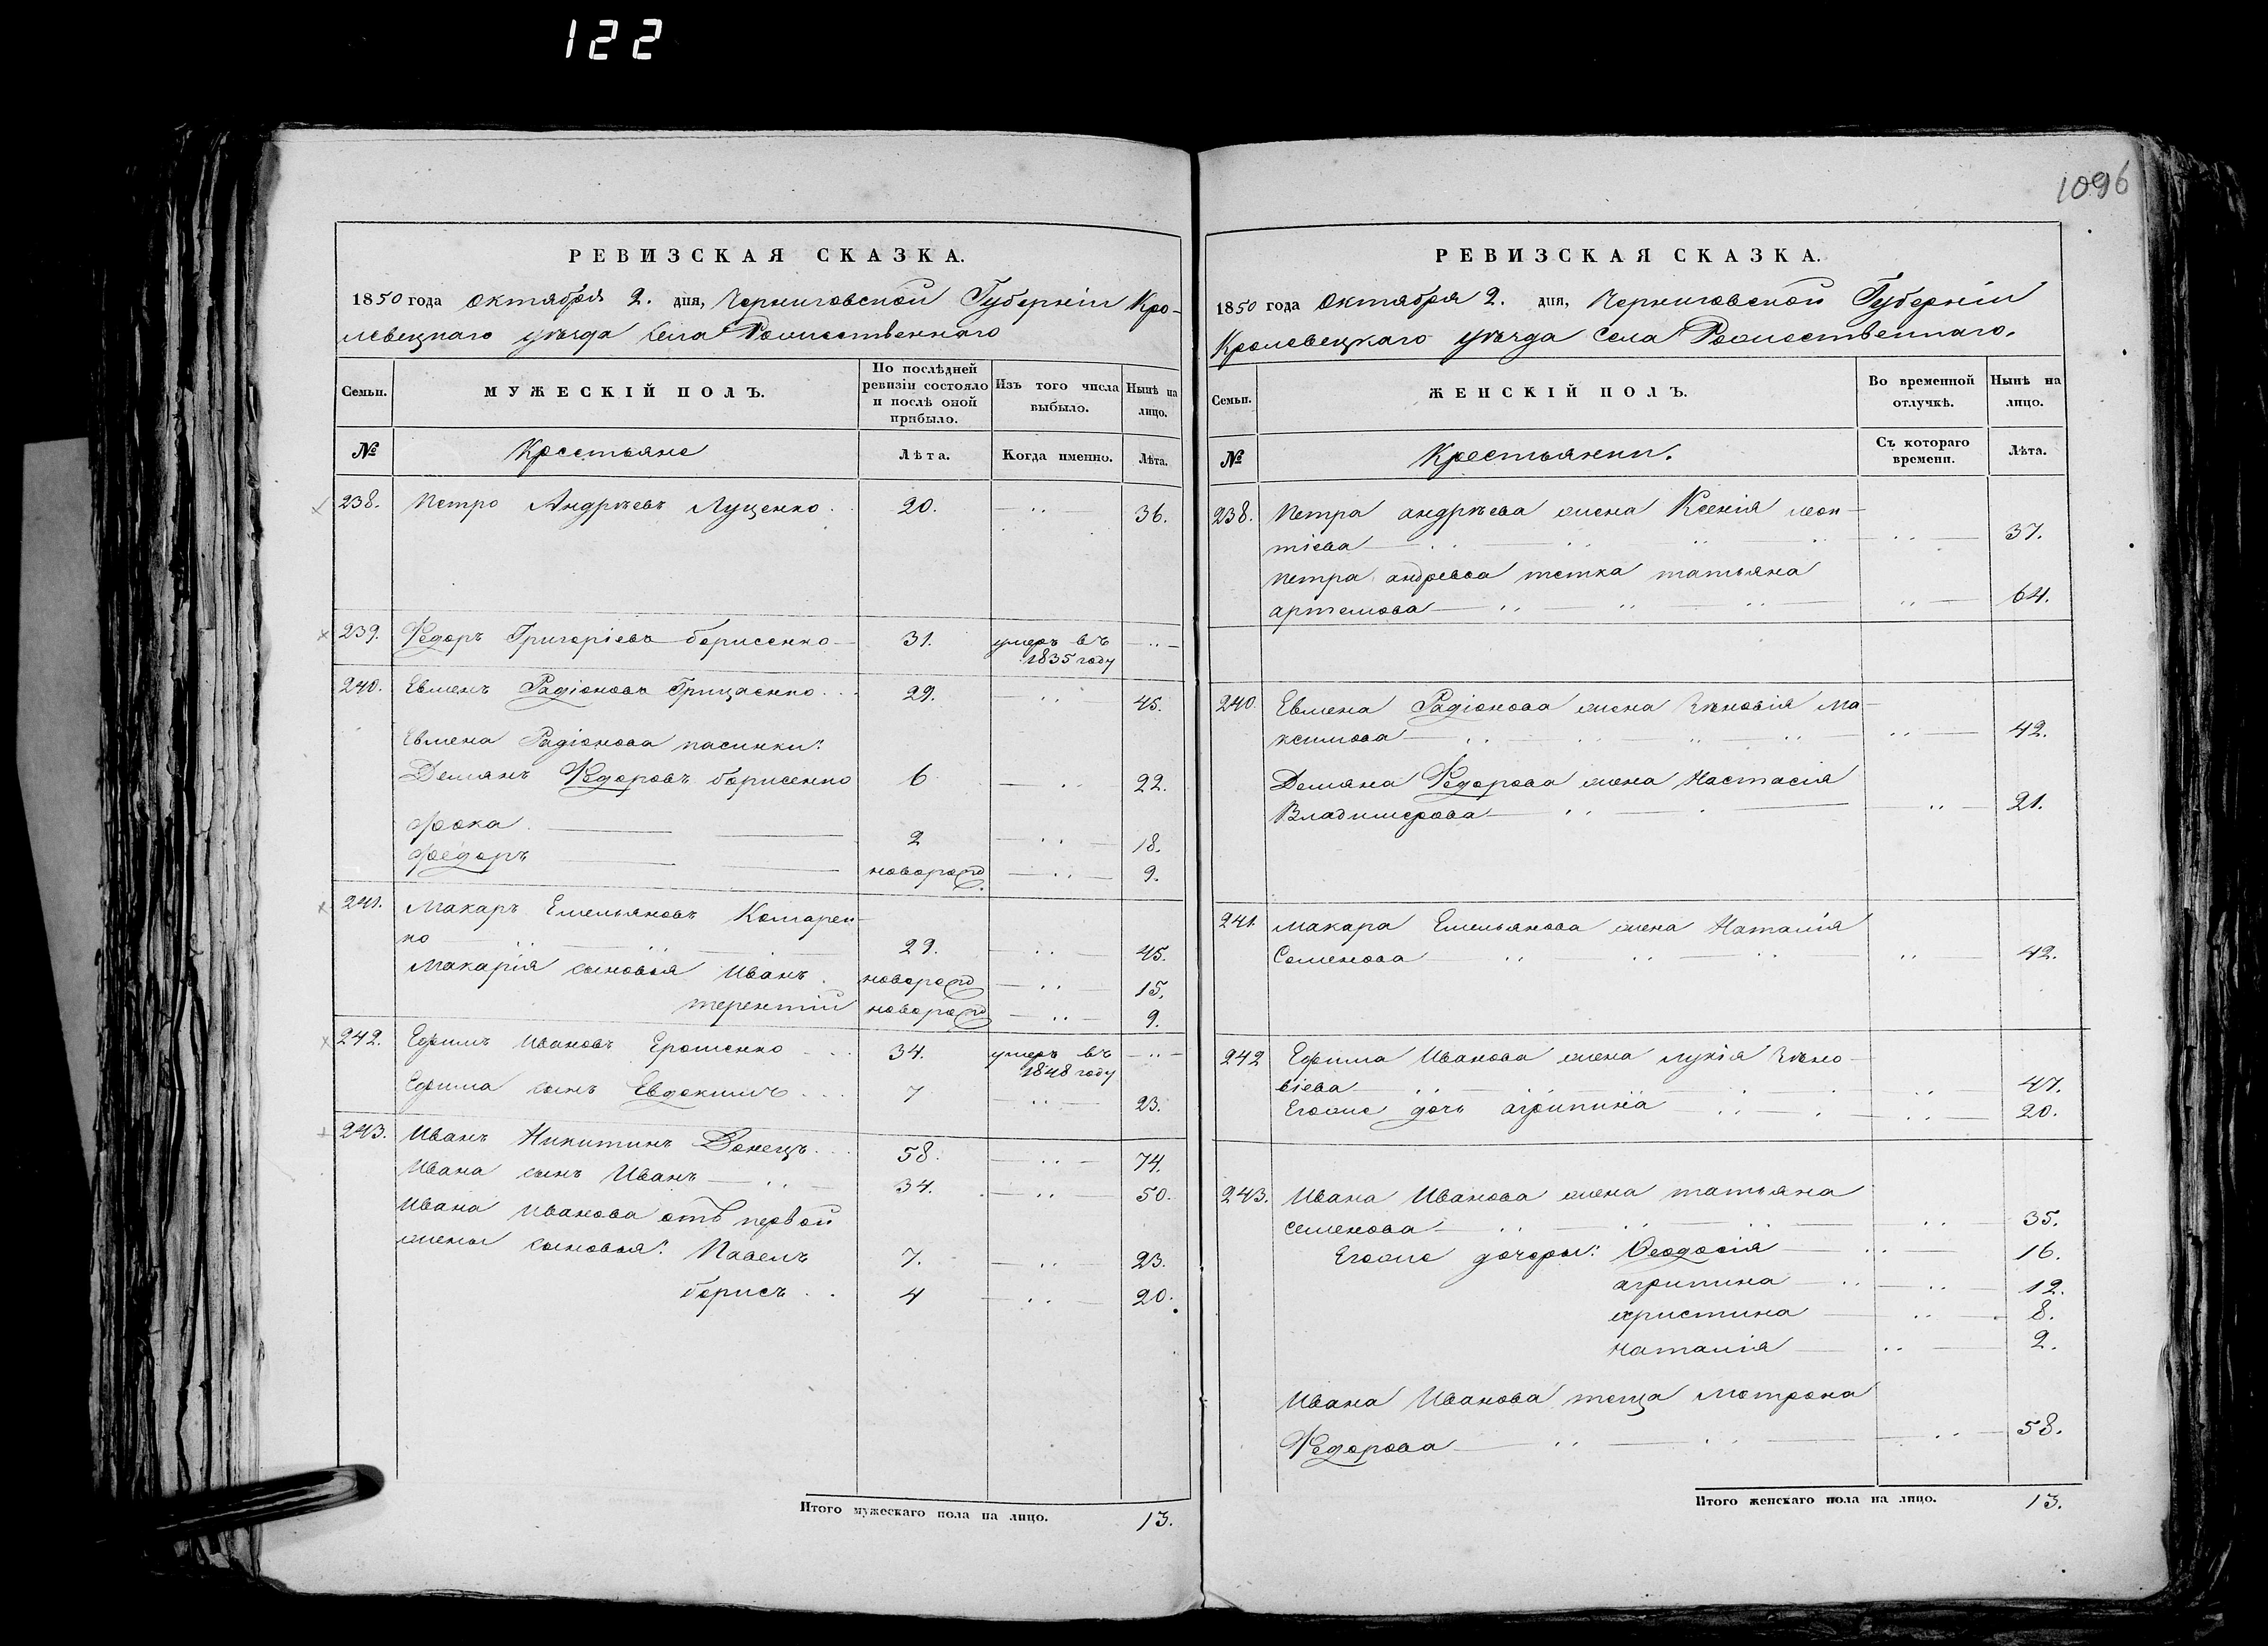 122
1096
РЕВИЗСКАЯ СКАЗКА.
1850 года Октября 2. дня, Черниговской Губерніи Кро-
левецкаго уѣзда Села Рожественнаго
Семьи. МУЖЕСКІЙ ПОЛЪ. По послѣдней ревизіи состояло и послѣ оной прибыло. Изъ того числа выбыло. Нынѣ на лицо.
№ Крестьяне Лѣта. Когда именно. Лѣта.
238. Петро Андрѣевъ Луценко 20. 36.
239. Федоръ Григоріевъ борисенко 31. умеръ въ
1835 году
240. Евменъ Радіоновъ Грицаенко 29. 45.
Евмена Радіонова пасинки:
Демянъ Федоровъ борисенко 6 22.
Фока 2 18.
Федоръ новорожд. 9.
241. Макаръ Емельяновъ Комарен-
ко 29. 45.
Макарія сыновья Иванъ новорожд 15.
терентій новорожд 9.
242. Ефимъ Ивановъ Ерошенко 34. умеръ въ
1848 году
Ефима сынъ Евдокимъ 7 23.
243. Иванъ Никитинъ Донецъ 58. 74.
Ивана сынъ Иванъ 34. 50.
Ивана Иванова отъ первой
жены сыновья: Павелъ 7. 23.
борисъ 4 20.
Итого мужескаго пола на лицо. 13.
РЕВИЗСКАЯ СКАЗКА.
1850 года Октября 2. дня, Черниговской Губерніи
Кролевецкаго уѣзда Села Рожественнаго.
Семьи. ЖЕНСКІЙ ПОЛЪ. Во временной отлучкѣ. Нынѣ на лицо.
№ Крестьянки. Съ котораго времени. Лѣта.
238. Петра андрѣева жена Ксенія леон-
тіева 37.
петра андреева тетка татьяна
артемова 64.
240. Евмена Радіонова жена Зѣновія Ма-
ксимова 42.
Демяна Федорова жена Настасія
Владимерова 21.
241. макара Емельянова жена Наталія
Семенова 42.
242 Ефима Иванова жена лукія Зѣно-
віева 47.
Егоже дочь агрипина 20.
243. Ивана Иванова жена татьяна
семенова 35.
Егоже дочеры: Феодосія 16.
агрипина 12.
христина 8.
наталія 2.
Ивана Иванова теща Мотрона
Федорова 58.
Итого женскаго пола на лицо. 13.